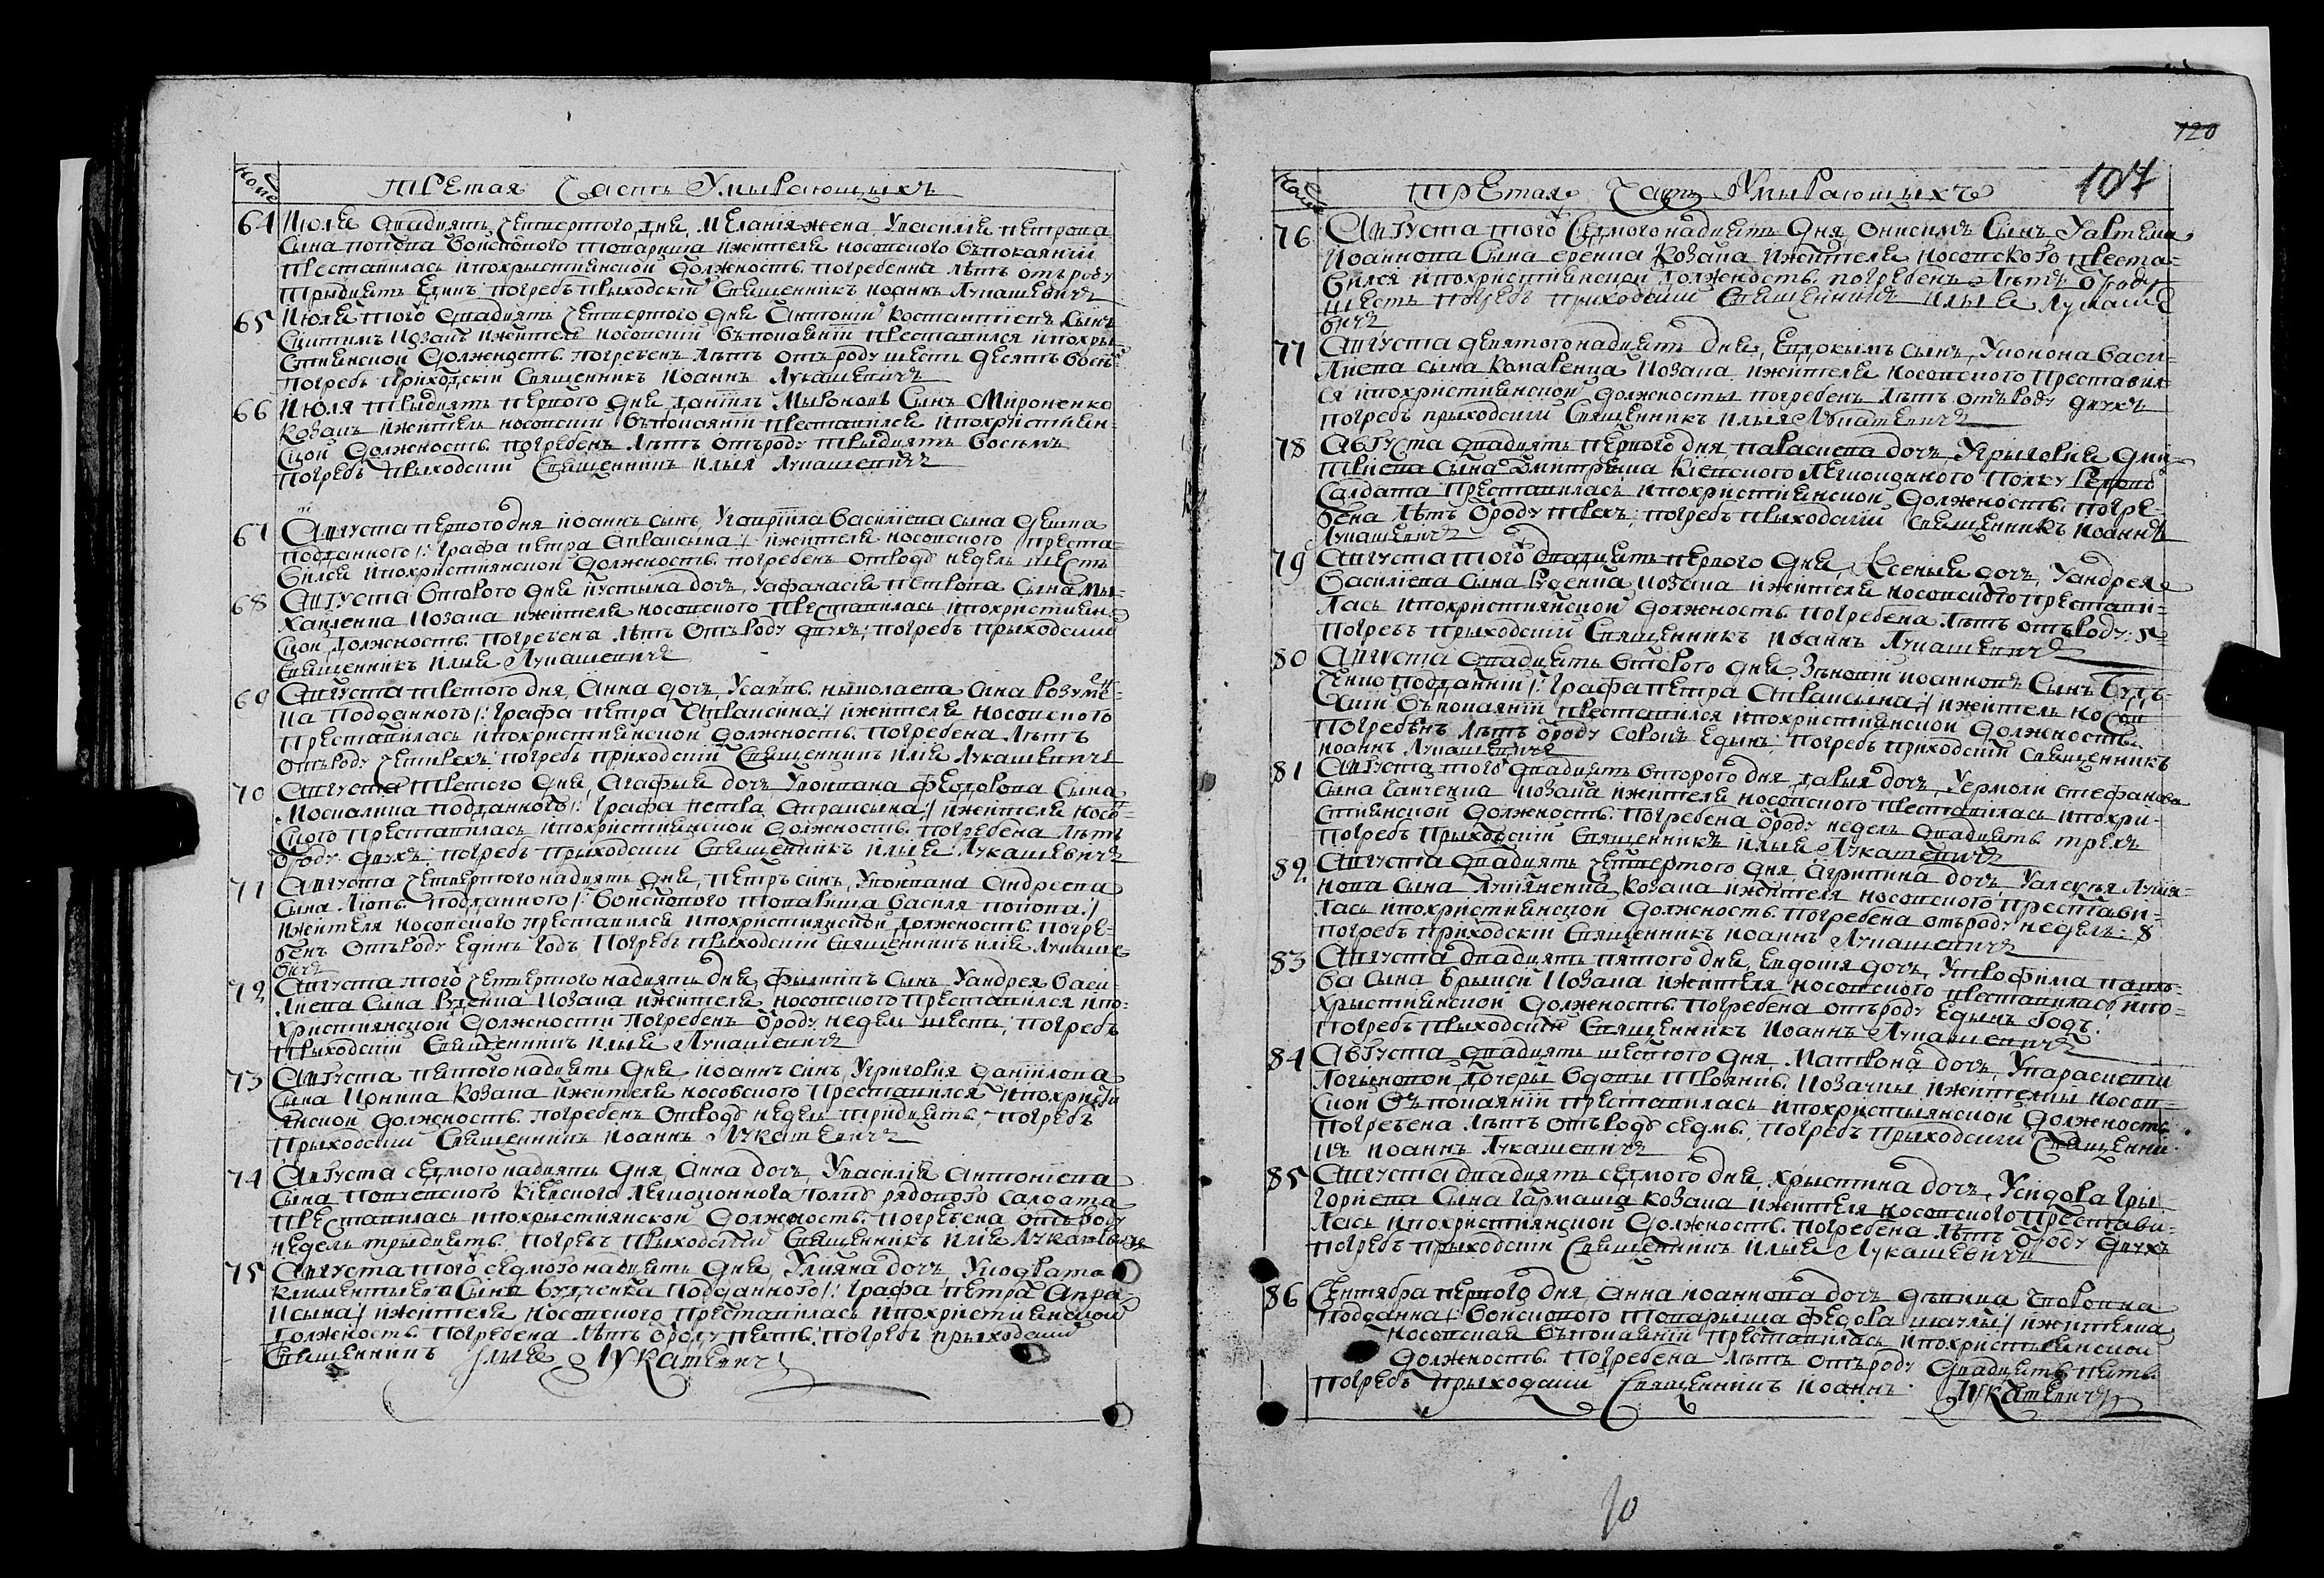 Третая Часть Умырающыхъ
64 Июля двадцять Четвертого дня, Меланія жена, Увасилия петрова
Сына попова войскового товарища и жителя носовского въпокаянии
Преставилась и похрыстиянской должность погребенна лѣтъ отъ роду
Трыдцять Единъ погребъ Прыходскій Священникъ иоаннъ Лукашевичъ
65 Июля того двадцять Четвертого дня Антоній Костантиевъ Сынъ
козакъ и житель носовский въпокаянии Преставился и похры
стиянской должность погребенъ лѣтъ отъ роду шесть десятъ восмъ
погребъ Приходскій Священникъ Иоаннъ Лукашевичъ
66 Июля трыдцять первого дня данііль Мыроновъ Сынъ Мироненко
козакъ и житель носовскій въпокаянии преставился и похристиян-
ской должность погребенъ лѣтъ отъ роду трыдцять восьмъ
погребъ прыходский Священникъ илыя Лукашевичъ
67 Августа первого дня иоаннъ сынъ, Угаврііла василіева сына
подданного /: графа петра апраксына :/ и жителя носовского преста-
вился и похристиянской должность погребенъ отроду недель шесть
68 Августа второго дня иустына дочъ, Уафанасія петрова сына Ми-
хайленка козака и жителя носовского преставилась и похристиян-
ской должность погребена лѣтъ отъ роду двухъ; погребъ прыходский
Священникъ илыя Лукашевичъ
69 Августа третого дня, Анна дочъ, Усаввы николаева сина
подданного /: графа петра Апраксина :/ и жителя носовского
преставилась и похристиянской должность погребена лѣтъ
отъ роду Четырехъ погребъ приходский Священникъ илия Лукашевичъ
70 Августа третого дня, Агафыя дочъ, Уромана феодорова сына
Москалица подданного /: графа петра апраксына :/ и жителя носов-
ского преставилась и похристиянской должность погребена лѣтъ
ороду двухъ погребъ прыходский Священникъ илыя Лукашевичъ
71 Августа Четвертогонадцять дня, петръ синъ, Уромана Андреева
Сына подданного /: войскового товарища василя попова :/
и жителя носовского преставился и похристиянской должность погре-
бенъ отъ роду единъ годъ погребъ прыходский Священникъ илія Лукаше
вичъ
72 Августа того Четвертогонадцять дня, филипъ сынъ Уандрея васи-
лиева сына Руденка козака и жителя носовского преставился и по-
християнской должности погребенъ ороду недель шесть; погребъ
прыходский Священникъ илыя Лукашевичъ
73 Августа пятогонадцять дня иоаннъ синъ, Угригорія даніілова
сына козака и жителя носовского преставился и похристи
янской должность погребенъ отроду недель трідцять, погребъ
прыходский Священникъ иоаннъ Лукашевичъ
74 Августа седмогонадцять дня, Анна дочъ, Увасилія антоніева
сына киевского легионного полку рядового салдата
преставилась и похрыстиянской должность погребена отъ роду
недель трыдцять погребъ прыходский Священникъ илія Лукашевичъ
75 Августа того седмогонадцять дня, Улияна дочъ, Укодрата
климентиева сына Будченка подданного /: графа петра апра
ксына :/ и жителя носовского преставилась и похристиянской
должность погребена лѣтъ ороду пять погребъ прыходский
Священникъ илия Лукашевичъ
120
107
Третая Часть Умырающихъ
76 Августа того Седмогонадцять дня, онисимъ сынъ
иоаннова сына козака и жителя носовского преста-
вился и похристиянской должность погребенъ лѣтъ ороду
шесть погребъ приходский Священникъ илыя Лукаше
вичъ
77 Августа девятогонадцять дня, Евдокымъ сынъ, Уконона васи-
лиева сына Комаренца козака и жителя носовского преставил-
ся и похристиянской должносты погребенъ лѣтъ отъ роду двухъ
погребъ прыходский Священникъ илыя Лукашевичъ
78 Августа двадцять первого дня, параскева дочъ, Угрыгорія дми-
триева сына Дмитренка киевского легионного полку
салдата преставилась и похристиянской должность погре-
бена лѣтъ ороду трехъ; погребъ прыходский Священникъ иоаннъ
Лукашевичъ
79 Августа того двадцять первого дня, Ксеныя дочъ, Уандрея
василіева сына Руденка козака и жителя носовского престави-
лась и похристиянской должность погребена лѣтъ отъ роду 5
погребъ прыходский Священникъ иоаннъ Лукашевичъ
80 Августа двадцять второго дня, Зѣновій иоанновъ сынъ Буд-
ченко подданній /: графа петра апраксына :/ и житель носов
ский въпокаянии преставился и похристиянской должность
погребенъ лѣтъ ороду сорокъ едынъ; погребъ приходский Священникъ
иоаннъ Лукашевичъ
81 Августа того двадцять второго дня дарыя дочъ, Уермоли стефанова
сына козака и жителя носовского преставилась и похри-
стиянской должность погребена ороду недель двадцять трехъ
погребъ прыходский Священникъ илыя Лукашевичъ
82 Августа двадцять Четвертого дня, агрипина дочъ, Уалексѣя Лукия-
нова сына Лукияненка козака и жителя носовского престави-
лась и похристиянской должность погребена отъ роду недель 8
погребъ приходский Священникъ иоаннъ Лукашевичъ
83 Августа двадцять пятого дня, евдокія дочъ, Утрофима павло-
ва сына козака и жителя носовского преставилась и по-
християнской должность погребена отъ роду едынъ годъ.
погребъ прыходский Священникъ иоаннъ Лукашевичъ
84 Августа двадцять шестого дня, Матрона дочъ, Упараскевы
Логыновой дочеры вдовы козачки и жителки носов-
ской въпокаянии преставилась и похристыянской должность
погребена лѣтъ отъ роду седмъ, погребъ прыходский Священни-
къ иоаннъ Лукашевичъ
85 Августа двадцять седмого дня, хрыстина дочъ, Усидора гри-
горіева сына Гармаша козака и жителя носовского престави-
лась и похристиянской должность погребена лѣтъ ороду двухъ
погребъ прыходский Священникъ илыя Лукашевичъ
86 Сентября первого дня, Анна иоаннова дочъ дѣвица
подданна /: войскового товарыща федора шачлы :/ и жителка
носовская въпокаянии преставилась и похристыянской
должность погребена лѣтъ отъ роду двадцять пять
погребъ прыходский Священникъ иоаннъ Лукашевичъ